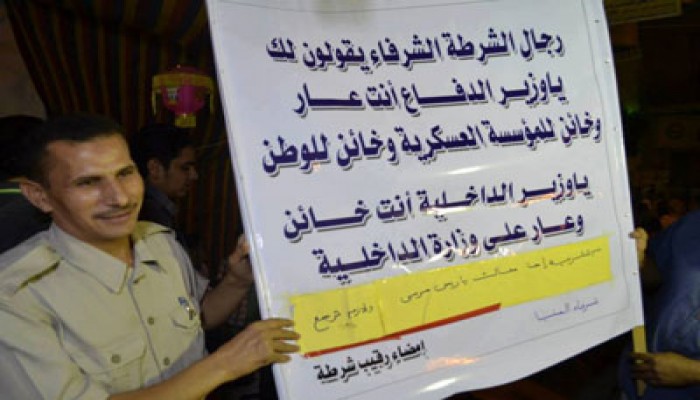 رجال الشرطة الشرفاء يقولون لك
ياوزير الدفاع أنت عار
وخائن للمؤسسة العسكرية وخائن للوطن
ياوزير الداخلية أنت خائن
وعار على وزارة الداخلية
احنا معاك ياريس مرسى ولازم ترجع
إمضاء رقيب شرطة